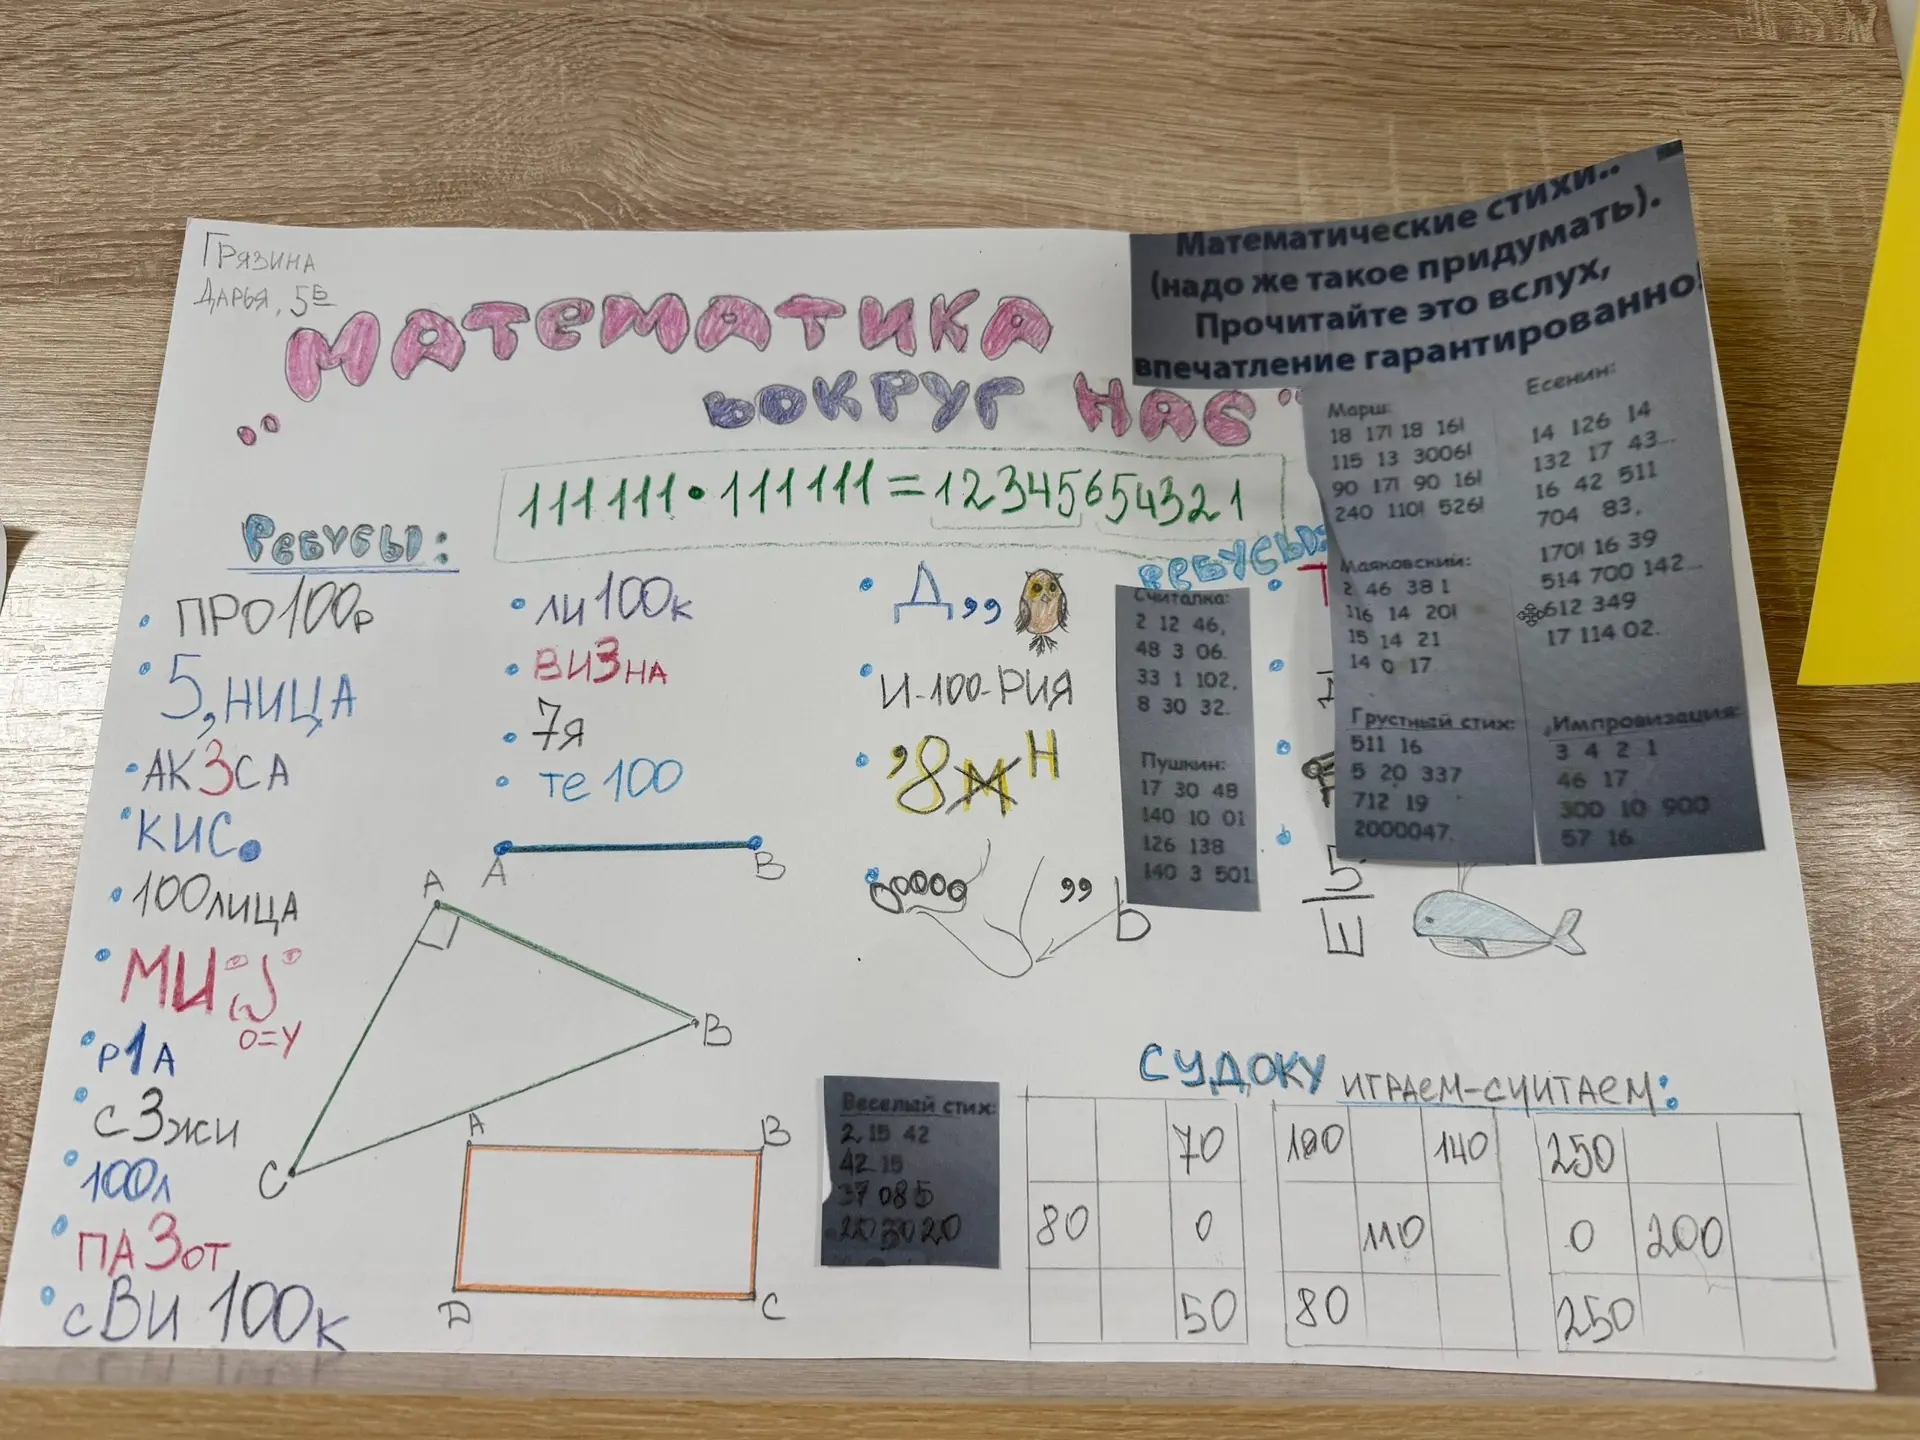 Грязина
Дарья, 5в
"Математика
вокруг нас"
111111·111111=12345654321
Ребусы:
ПРО100р
5,НИЦА
АК3СА
КИС.
100ЛИЦА
МИ
о=у
Р1А
С3ЖИ
100Л
ПА3от
сВИ 100к
ЛИ100К
ВИ3НА
7Я
те 100
A B
A
B
C
A B
D C
Ребусы:
Д,,
И-100-РИЯ
,8м н
,, Ь
Математические стихи..
(надо же такое придумать).
Прочитайте это вслух,
впечатление гарантированно!
Считалка:
2 12 46,
48 3 06.
33 1 102,
8 30 32.
Пушкин:
17 30 48
140 10 01
126 138
140 3 501
Марш:
18 17! 18 16!
115 13 3006!
90 17! 90 16!
240 110! 526!
Маяковский:
2 46 38 1
116 14 20!
15 14 21
14 0 17
Грустный стих:
511 16
5 20 337
712 19
2000047.
Есенин:
14 126 14
132 17 43...
16 42 511
704 83.
170! 16 39
514 700 142...
612 349
17 114 02.
Импровизация:
3 4 2 1
46 17
300 10 900
57 16
Веселый стих:
2 15 42
42 15
37 08 5
20 20 20
СУДОКУ играем-считаем:
70 100 140 250
80 0 110 0 200
50 80 250